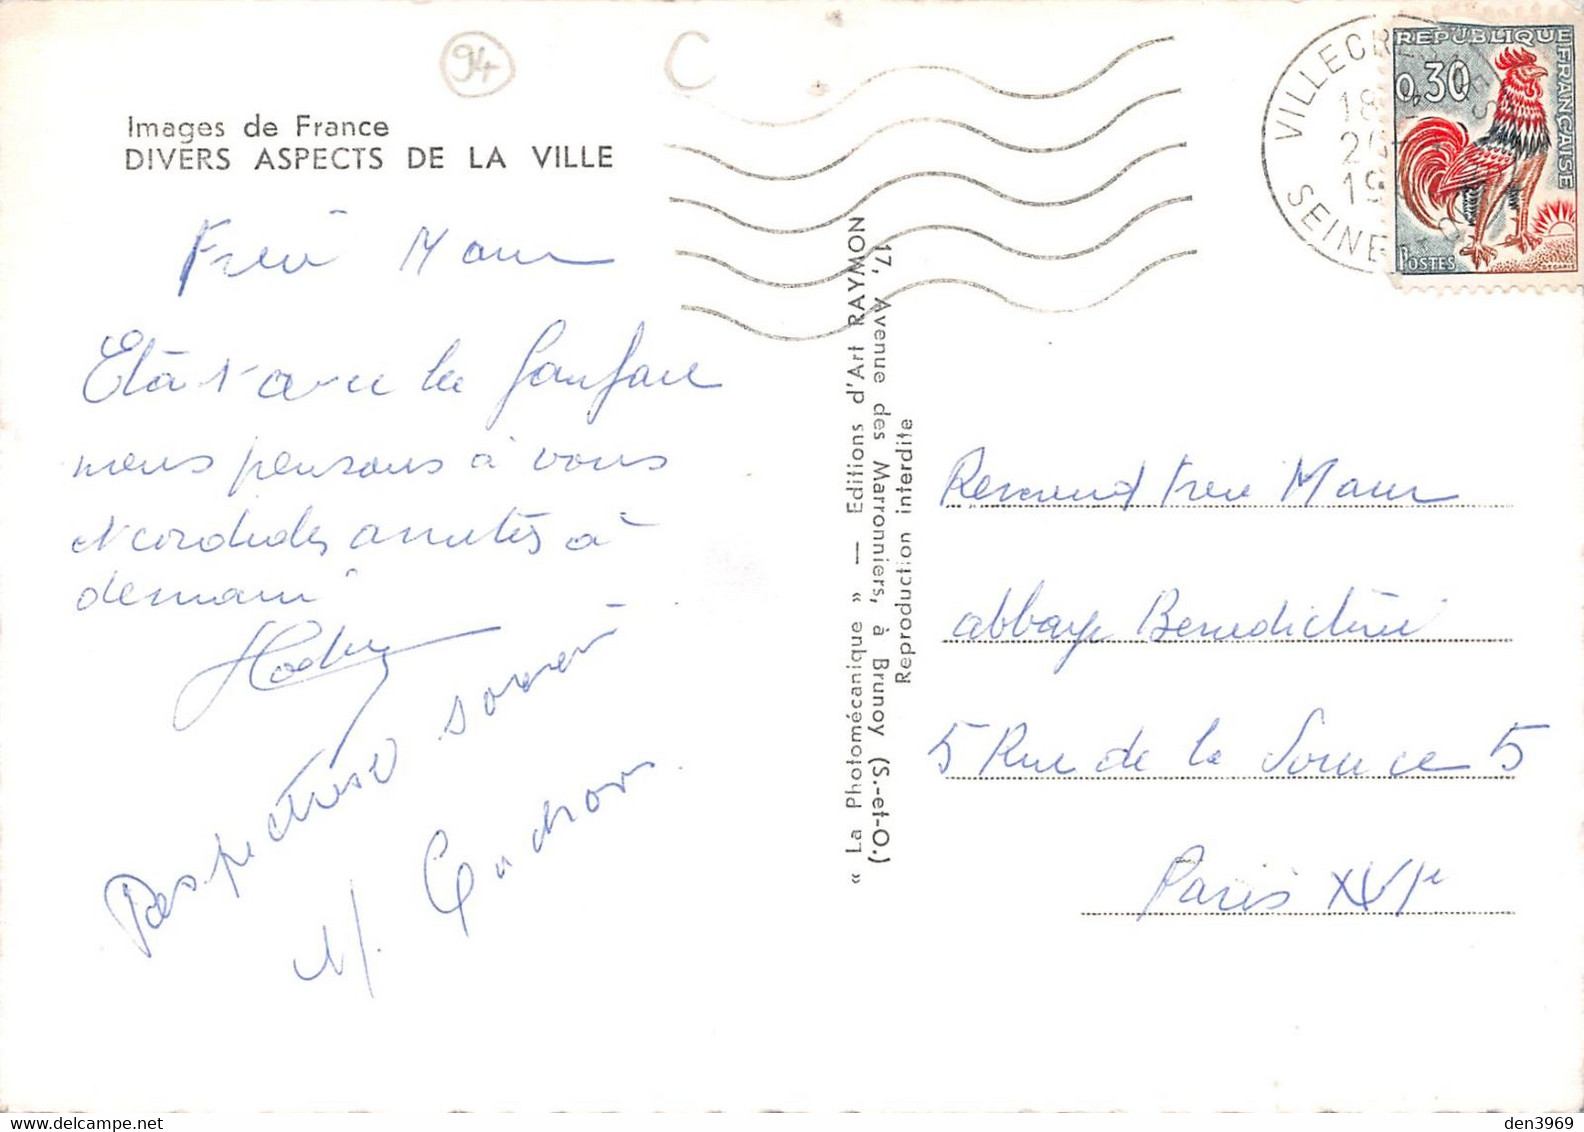 94
C
Images de France
DIVERS ASPECTS DE LA VILLE
Frère Maur
Etant avec la fanfare
nous pensons à vous
et cordiales amitiés à
demain
Respectueux souvenir
M.
" La Photomécanique " — Editions d'Art RAYMON
17, Avenue des Marronniers, à Brunoy (S.-et-O.)
Reproduction interdite
VILLECRESNES
18
SEINE
RÉPUBLIQUE FRANÇAISE
0,30
POSTES
DECARIS
Révérend Frère Maur
abbaye Bénédictine
5 Rue de la Source 5
Paris XVIe
den3969